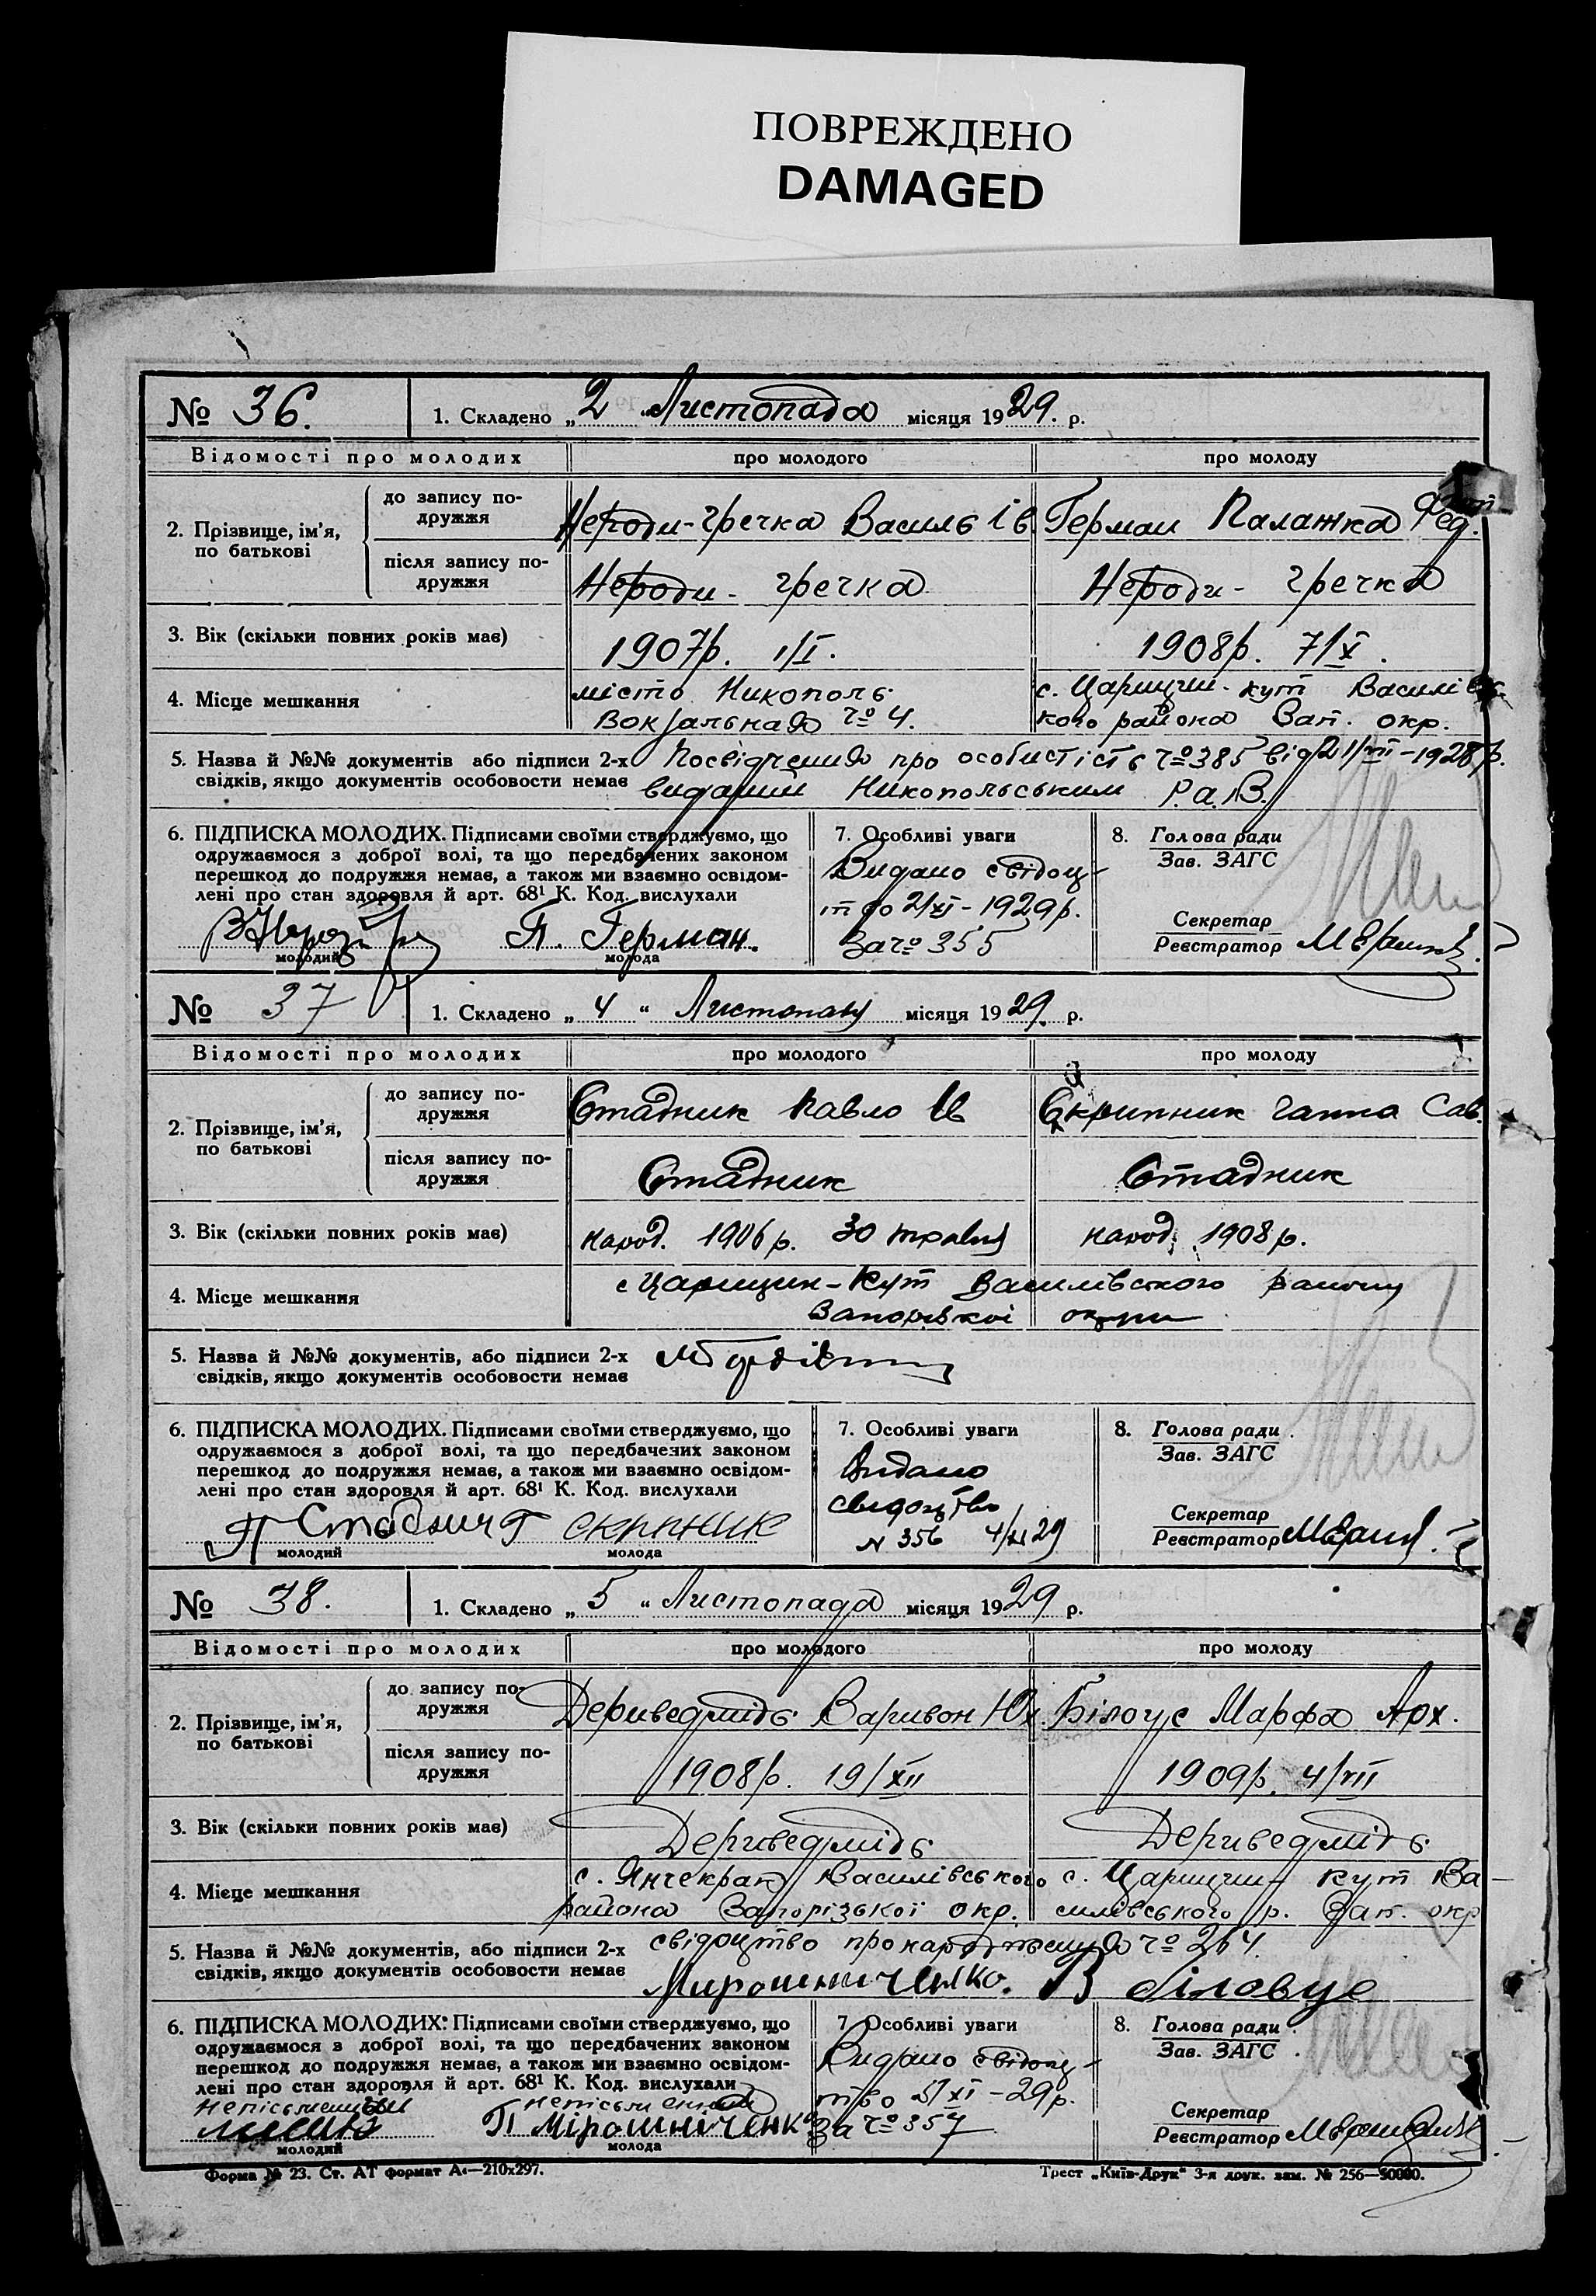 ПОВРЕЖДЕНО
DAMAGED
№ 36. 1. Складено „2“ Листопада місяця 1929. р.
Відомості про молодих про молодого про молоду
2. Прізвище, ім'я, по батькові
до запису подружжя Нероди-гречка Василь Ів. Герман Палажка Фед.
після запису подружжя Нероди-гречка Нероди-гречка
3. Вік (скільки повних років має) 1907р. 1/I. 1908р. 7/X.
4. Місце мешкання місто Никополь с. Царицин-кут Василівс-
Вокзальная № 4. кого района Зап. окр.
5. Назва й №№ документів або підписи 2-х Посвідчення про особистість № 385 від 21/VII-1928р.
свідків, якщо документів особовости немає виданий Никопольським Р.а.В.
6. ПІДПИСКА МОЛОДИХ. Підписами своїми стверджуємо, що 7. Особливі уваги 8. Голова ради
одружаємося з доброї волі, та що передбачених законом Видано свідоц- Зав. ЗАГС
перешкод до подружжя немає, а також ми взаємно освідом-
лені про стан здоровля й арт. 68¹ К. Код. вислухали тво 2/XI-1929р. Секретар
П. Герман. За № 355 Реєстратор
молодий молода
№ 37 1. Складено „4“ Листопада місяця 1929. р.
Відомості про молодих про молодого про молоду
2. Прізвище, ім'я, по батькові
до запису подружжя Стадник Павло Ів Скрипник Ганна Сав.
після запису подружжя Стадник Стадник
3. Вік (скільки повних років має) народ. 1906 р. 30 травня народ. 1908 р.
4. Місце мешкання с Царицин-Кут Василівського району
Запорізької округи
5. Назва й №№ документів, або підписи 2-х
свідків, якщо документів особовости немає
6. ПІДПИСКА МОЛОДИХ. Підписами своїми стверджуємо, що 7. Особливі уваги 8. Голова ради
одружаємося з доброї волі, та що передбачених законом Видано Зав. ЗАГС
перешкод до подружжя немає, а також ми взаємно освідом-
лені про стан здоровля й арт. 68¹ К. Код. вислухали свидоцтво Секретар
П Стадник Г скрпник N 356 4/XI 29 Реєстратор
молодий молода
№ 38. 1. Складено „5“ Листопада місяця 1929 р.
Відомості про молодих про молодого про молоду
2. Прізвище, ім'я, по батькові
до запису подружжя Дериведмідь Варивон Юх. Білоус Марфа Арх.
після запису подружжя 1908р. 19/XII 1909р. 4/VII
3. Вік (скільки повних років має) Дериведмідь Дериведмідь
4. Місце мешкання с. Янчекрак Василівського с. Царицин-Кут Ва-
района Запорізької окр. силівського р. Зап. окр
5. Назва й №№ документів, або підписи 2-х свідоцтво про народження № 264.
свідків, якщо документів особовости немає Мирошниченко. В біловус
6. ПІДПИСКА МОЛОДИХ: Підписами своїми стверджуємо, що 7. Особливі уваги 8. Голова ради
одружаємося з доброї волі, та що передбачених законом Видано свідоц- Зав. ЗАГС
перешкод до подружжя немає, а також ми взаємно освідом-
лені про стан здоровля й арт. 68¹ К. Код. вислухали тво 5/XI-29р. Секретар
П Мірошніченко За № 357 Реєстратор
молодий молода
Форма № 23. Ст. АТ формат А₄—210x297. Трест „Київ-Друк“ 3-я друк. зам. № 256—50000.